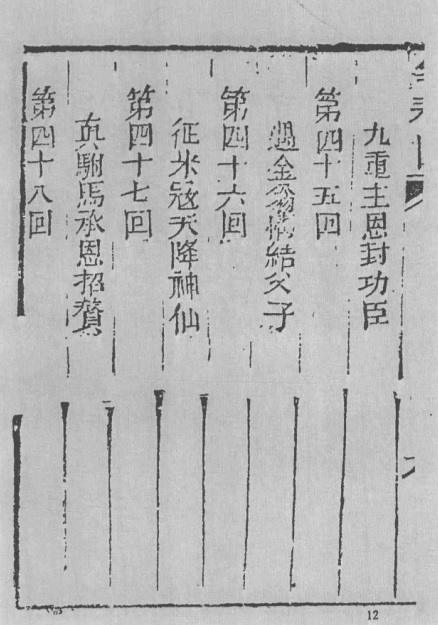 九重主恩封功臣
第四十五回
遇金翁搆結父子
第四十六回
征米寇天降神仙
第四十七回
真駙馬承恩招贅
第四十八回
12